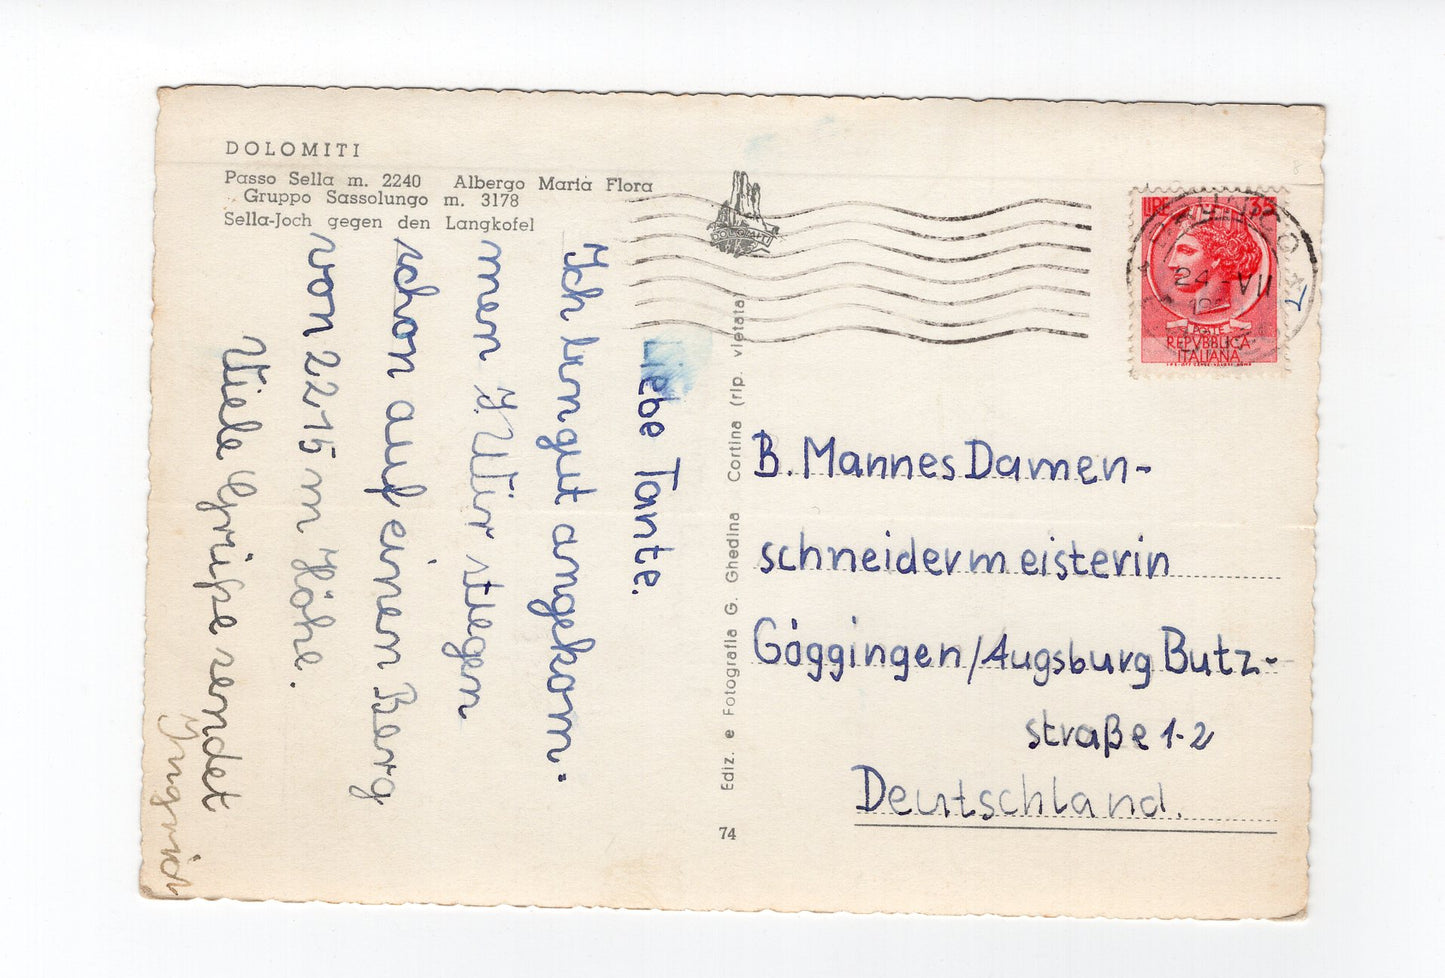 DOLOMITI
Passo Sella m. 2240 Albergo Maria Flora
Gruppo Sassolungo m. 3178
Sella-Joch gegen den Langkofel
Liebe Tante.
Ich bin gut angekom-
men J. Wir stiegen
schon auf einen Berg
von 2215 m Höhe.
Viele Grüße sendet
Ingrid
DOLOMITI
Ediz. e Fotografia G. Ghedina Cortina (rip. vietata)
74
LIRE 35
24 -VII
POSTE
REPVBBLICA
ITALIANA
B. Mannes Damen-
schneidermeisterin
Göggingen/Augsburg Butz-
straße 1-2
Deutschland.